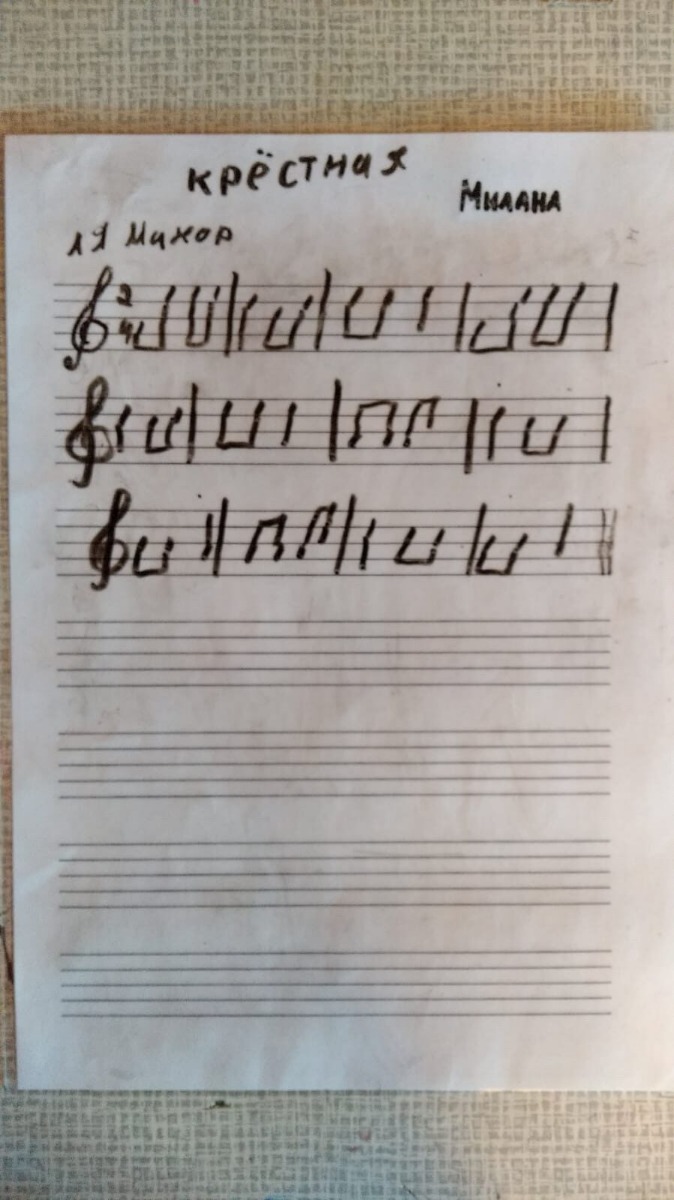 крёстная
Милана
ля Минор
2
4